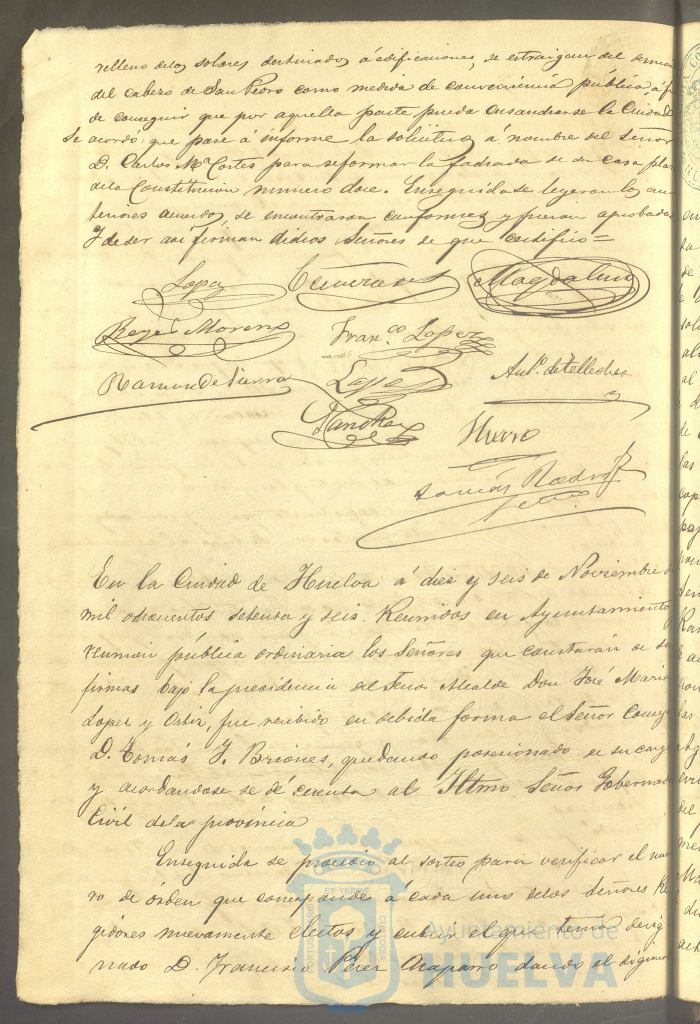 relleno de los solares destinados á edificaciones, se estraigan del
del cabezo de San Pedro como medida de conveniencia pública á
de conseguir que por aquella parte pueda ensancharse la Ciudad
Se acordó: que pase á informe la solicitud á nombre del Señor
D. Carlos Mª Cortes para reformar la fachada de su casa plaza
de la Constitucion numero doce. Enseguida se leyeron los an
teriores acuerdos, se encontraron conformes y fueron aprobados
Y de ser así firman dichos Señores de que certifico =
Lopez
Magdaleno
Reyes Moreno Fran.co Lopez
Ramon de Sierra Lopez Ant.o de Tellechea
Sanchez Hierro
Tomás Rodrig.z
En la Ciudad de Huelva á diez y seis de Noviembre d
mil ochocientos setenta y seis. Reunidos en Ayuntamiento
reunion pública ordinaria los Señores que constarán de su
firmas bajo la presidencia del Señor Alcalde Don José Maria
Lopez y Ortiz, fue recibido en debida forma el Señor Conseg
D. Tomás J. Briones, quedando posesionado de su cargo
y acordandose se dé cuenta al Iltmo Señor Gobernad
Civil de la provincia
Enseguida se procedió al sorteo para verificar el nume
ro de órden que corresponde á cada uno de los Señores Re
gidores nuevamente electos y el que tenia desig
nado D. Francisco Perez Chaparro dando el siguien
Ayuntamiento de
HUELVA